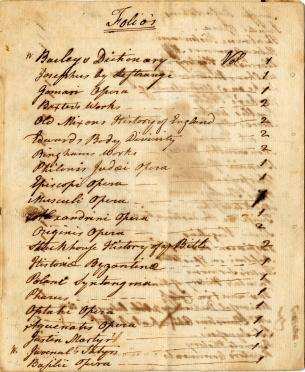 Folio's
Bayley's Dictionary Vol 1
Josephus by Lestrange 1
Opera 1
Baxter's Works 2
Old Mixons History of England 2
Edwards Body Divinity 2
Binghams Works 2
Philonis Judæi Opera 1
Episcopi Opera 1
Musculi Opera 1
Opera 1
Originis Opera 2
Stackhouse History of ye Bible 2
Historiæ Byzantinæ 1
Polani Syntagma 1
1
Optati Opera 1
Aquenatis Opera 1
Justen Martyr 1
Juvenal's 1
Basilii Opera 1